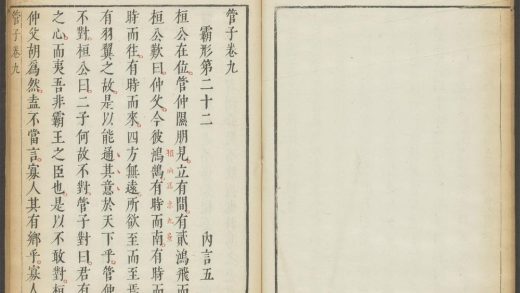 管子卷九
霸形第二十二 內言五
桓公在位管仲隰朋見立有間有貳鴻飛而
桓公歎曰仲父今彼鴻鵠有時而南有時而
時而往有時而來四方無遠所欲至而至焉
有羽翼之故是以能通其意於天下乎管仲
不對桓公曰二子何故不對管子對曰君有
之心而夷吾非霸王之臣也是以不敢對桓
仲父胡為然盍不當言寡人其有鄉乎寡人
管子卷九